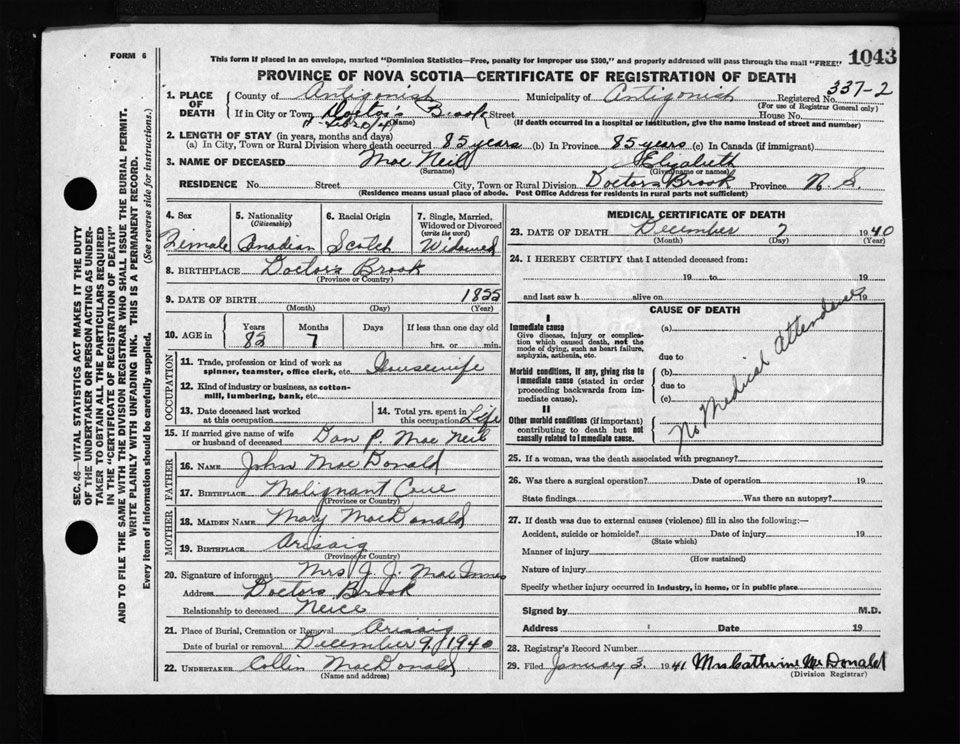 FORM 6
This form if placed in an envelope, marked "Dominion Statistics—Free, penalty for improper use $300," and properly addressed will pass through the mail "FREE."
1043
PROVINCE OF NOVA SCOTIA—CERTIFICATE OF REGISTRATION OF DEATH
337-2
1. PLACE OF DEATH
County of Antigonish Municipality of Antigonish Registered No.
(For use of Registrar General only)
If in City or Town Doctor's Brook Street House No.
(Name) (If death occurred in a hospital or institution, give the name instead of street and number)
2. LENGTH OF STAY (in years, months and days)
(a) In City, Town or Rural Division where death occurred 85 years (b) In Province 85 years (c) In Canada (if immigrant)
3. NAME OF DECEASED Mac Neil Elizabeth
(Surname) (Given name or names)
RESIDENCE No. Street City, Town or Rural Division Doctors Brook Province N. S.
(Residence means usual place of abode. Post Office Address for residents in rural parts not sufficient)
4. Sex
5. Nationality (Citizenship)
6. Racial Origin
7. Single, Married, Widowed or Divorced (write the word)
Female Canadian Scotch Widowed
8. BIRTHPLACE Doctors Brook
(Province or Country)
9. DATE OF BIRTH 1855
(Month) (Day) (Year)
10. AGE in
Years Months Days If less than one day old
7 hrs. or min.
OCCUPATION
11. Trade, profession or kind of work as spinner, teamster, office clerk, etc. Housewife
12. Kind of industry or business, as cotton-mill, lumbering, bank, etc.
13. Date deceased last worked at this occupation
14. Total yrs. spent in this occupation Life
15. If married give name of wife or husband of deceased Dan P. Mac Neil
FATHER
16. NAME John MacDonald
17. BIRTHPLACE Malignant Cove
(Province or Country)
MOTHER
18. MAIDEN NAME Mary MacDonald
19. BIRTHPLACE Arisaig
(Province or Country)
20. Signature of informant Mrs J. J. Mac Innes
Address Doctors Brook
Relationship to deceased Neice
21. Place of Burial, Cremation or Removal Arisaig
Date of burial or removal December 9, 1940
22. UNDERTAKER Collin MacDonald
(Name and address)
MEDICAL CERTIFICATE OF DEATH
23. DATE OF DEATH December 7 1940
(Month) (Day) (Year)
24. I HEREBY CERTIFY that I attended deceased from:
19 to 19
and last saw h alive on 19
CAUSE OF DEATH
I
Immediate cause
Give disease, injury or complication which caused death, not the mode of dying, such as heart failure, asphyxia, asthenia, etc.
(a)
due to
Morbid conditions, if any, giving rise to immediate cause (stated in order proceeding backwards from immediate cause).
(b)
due to
(c)
II
Other morbid conditions (if important) contributing to death but not causally related to immediate cause.
No Medical Attendence
25. If a woman, was the death associated with pregnancy?
26. Was there a surgical operation? Date of operation 19
State findings Was there an autopsy?
27. If death was due to external causes (violence) fill in also the following:—
Accident, suicide or homicide? Date of injury 19
(State which)
Manner of injury
(How sustained)
Nature of injury
Specify whether injury occurred in industry, in home, or in public place
Signed by M.D.
Address Date 19
28. Registrar's Record Number
29. Filed January 3. 1941 Mrs Catherine McDonald
(Division Registrar)
SEC. 46—VITAL STATISTICS ACT MAKES IT THE DUTY
OF THE UNDERTAKER OR PERSON ACTING AS UNDER-
TAKER TO OBTAIN ALL THE PARTICULARS REQUIRED
IN THE "CERTIFICATE OF REGISTRATION OF DEATH"
AND TO FILE THE SAME WITH THE DIVISION REGISTRAR WHO SHALL ISSUE THE BURIAL PERMIT.
WRITE PLAINLY WITH UNFADING INK. THIS IS A PERMANENT RECORD.
Every item of information should be carefully supplied. (See reverse side for instructions.)